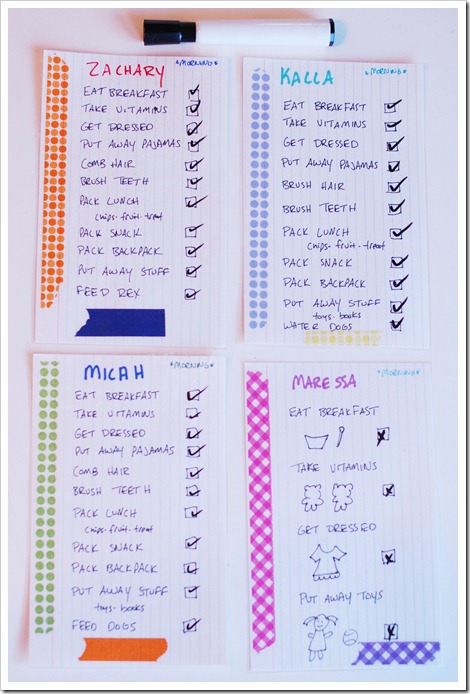 ZACHARY
*MORNING*
EAT BREAKFAST
TAKE VITAMINS
GET DRESSED
PUT AWAY PAJAMAS
COMB HAIR
BRUSH TEETH
PACK LUNCH
chips-fruit-treat
PACK SNACK
PACK BACKPACK
PUT AWAY STUFF
FEED REX
KALLA
*MORNING*
EAT BREAKFAST
TAKE VITAMINS
GET DRESSED
PUT AWAY PAJAMAS
BRUSH HAIR
BRUSH TEETH
PACK LUNCH
chips-fruit-treat
PACK SNACK
PACK BACKPACK
PUT AWAY STUFF
toys-books
WATER DOGS
MICAH
*MORNING*
EAT BREAKFAST
TAKE VITAMINS
GET DRESSED
PUT AWAY PAJAMAS
COMB HAIR
BRUSH TEETH
PACK LUNCH
chips-fruit-treat
PACK SNACK
PACK BACKPACK
PUT AWAY STUFF
toys-books
FEED DOGS
MARESSA
*MORNING*
EAT BREAKFAST
TAKE VITAMINS
GET DRESSED
PUT AWAY TOYS